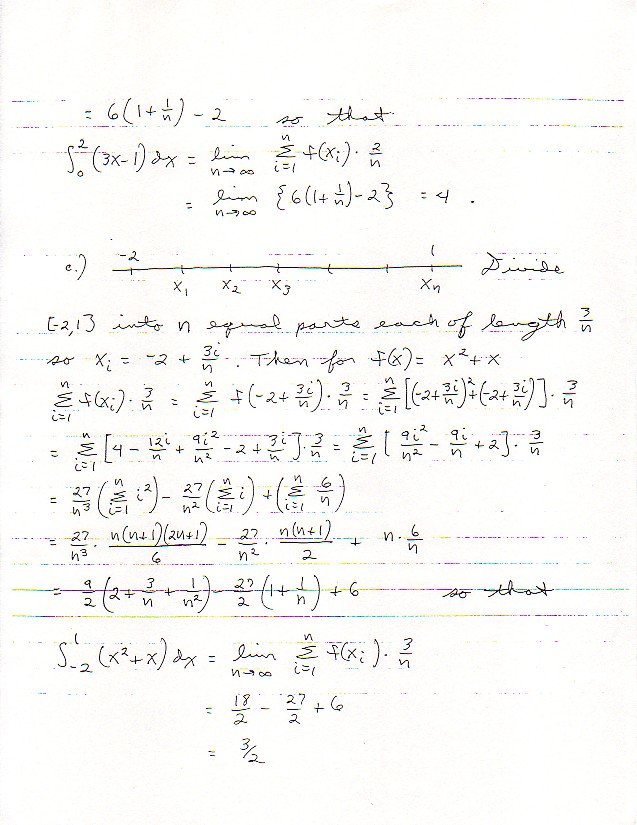 = 6(1+1/n) - 2 so that
∫₀² (3x-1) dx = lim n→∞ Σ i=1 n f(xᵢ) · 2/n
= lim n→∞ {6(1+1/n)-2} = 4 .
c.) -2 x₁ x₂ x₃ 1 xₙ Divide
[-2,1] into n equal parts each of length 3/n
so xᵢ = -2 + 3i/n . Then for f(x) = x²+x
Σ i=1 n f(xᵢ) · 3/n = Σ i=1 n f(-2+3i/n) · 3/n = Σ i=1 n [(-2+3i/n)²+(-2+3i/n)] · 3/n
= Σ i=1 n [4 - 12i/n + 9i²/n² - 2 + 3i/n] · 3/n = Σ i=1 n [9i²/n² - 9i/n + 2] · 3/n
= 27/n³ (Σ i=1 n i²) - 27/n² (Σ i=1 n i) + (Σ i=1 n 6/n)
= 27/n³ · n(n+1)(2n+1)/6 - 27/n² · n(n+1)/2 + n · 6/n
= 9/2 (2 + 3/n + 1/n²) - 27/2 (1 + 1/n) + 6 so that
∫₋₂¹ (x²+x) dx = lim n→∞ Σ i=1 n f(xᵢ) · 3/n
= 18/2 - 27/2 + 6
= 3/2